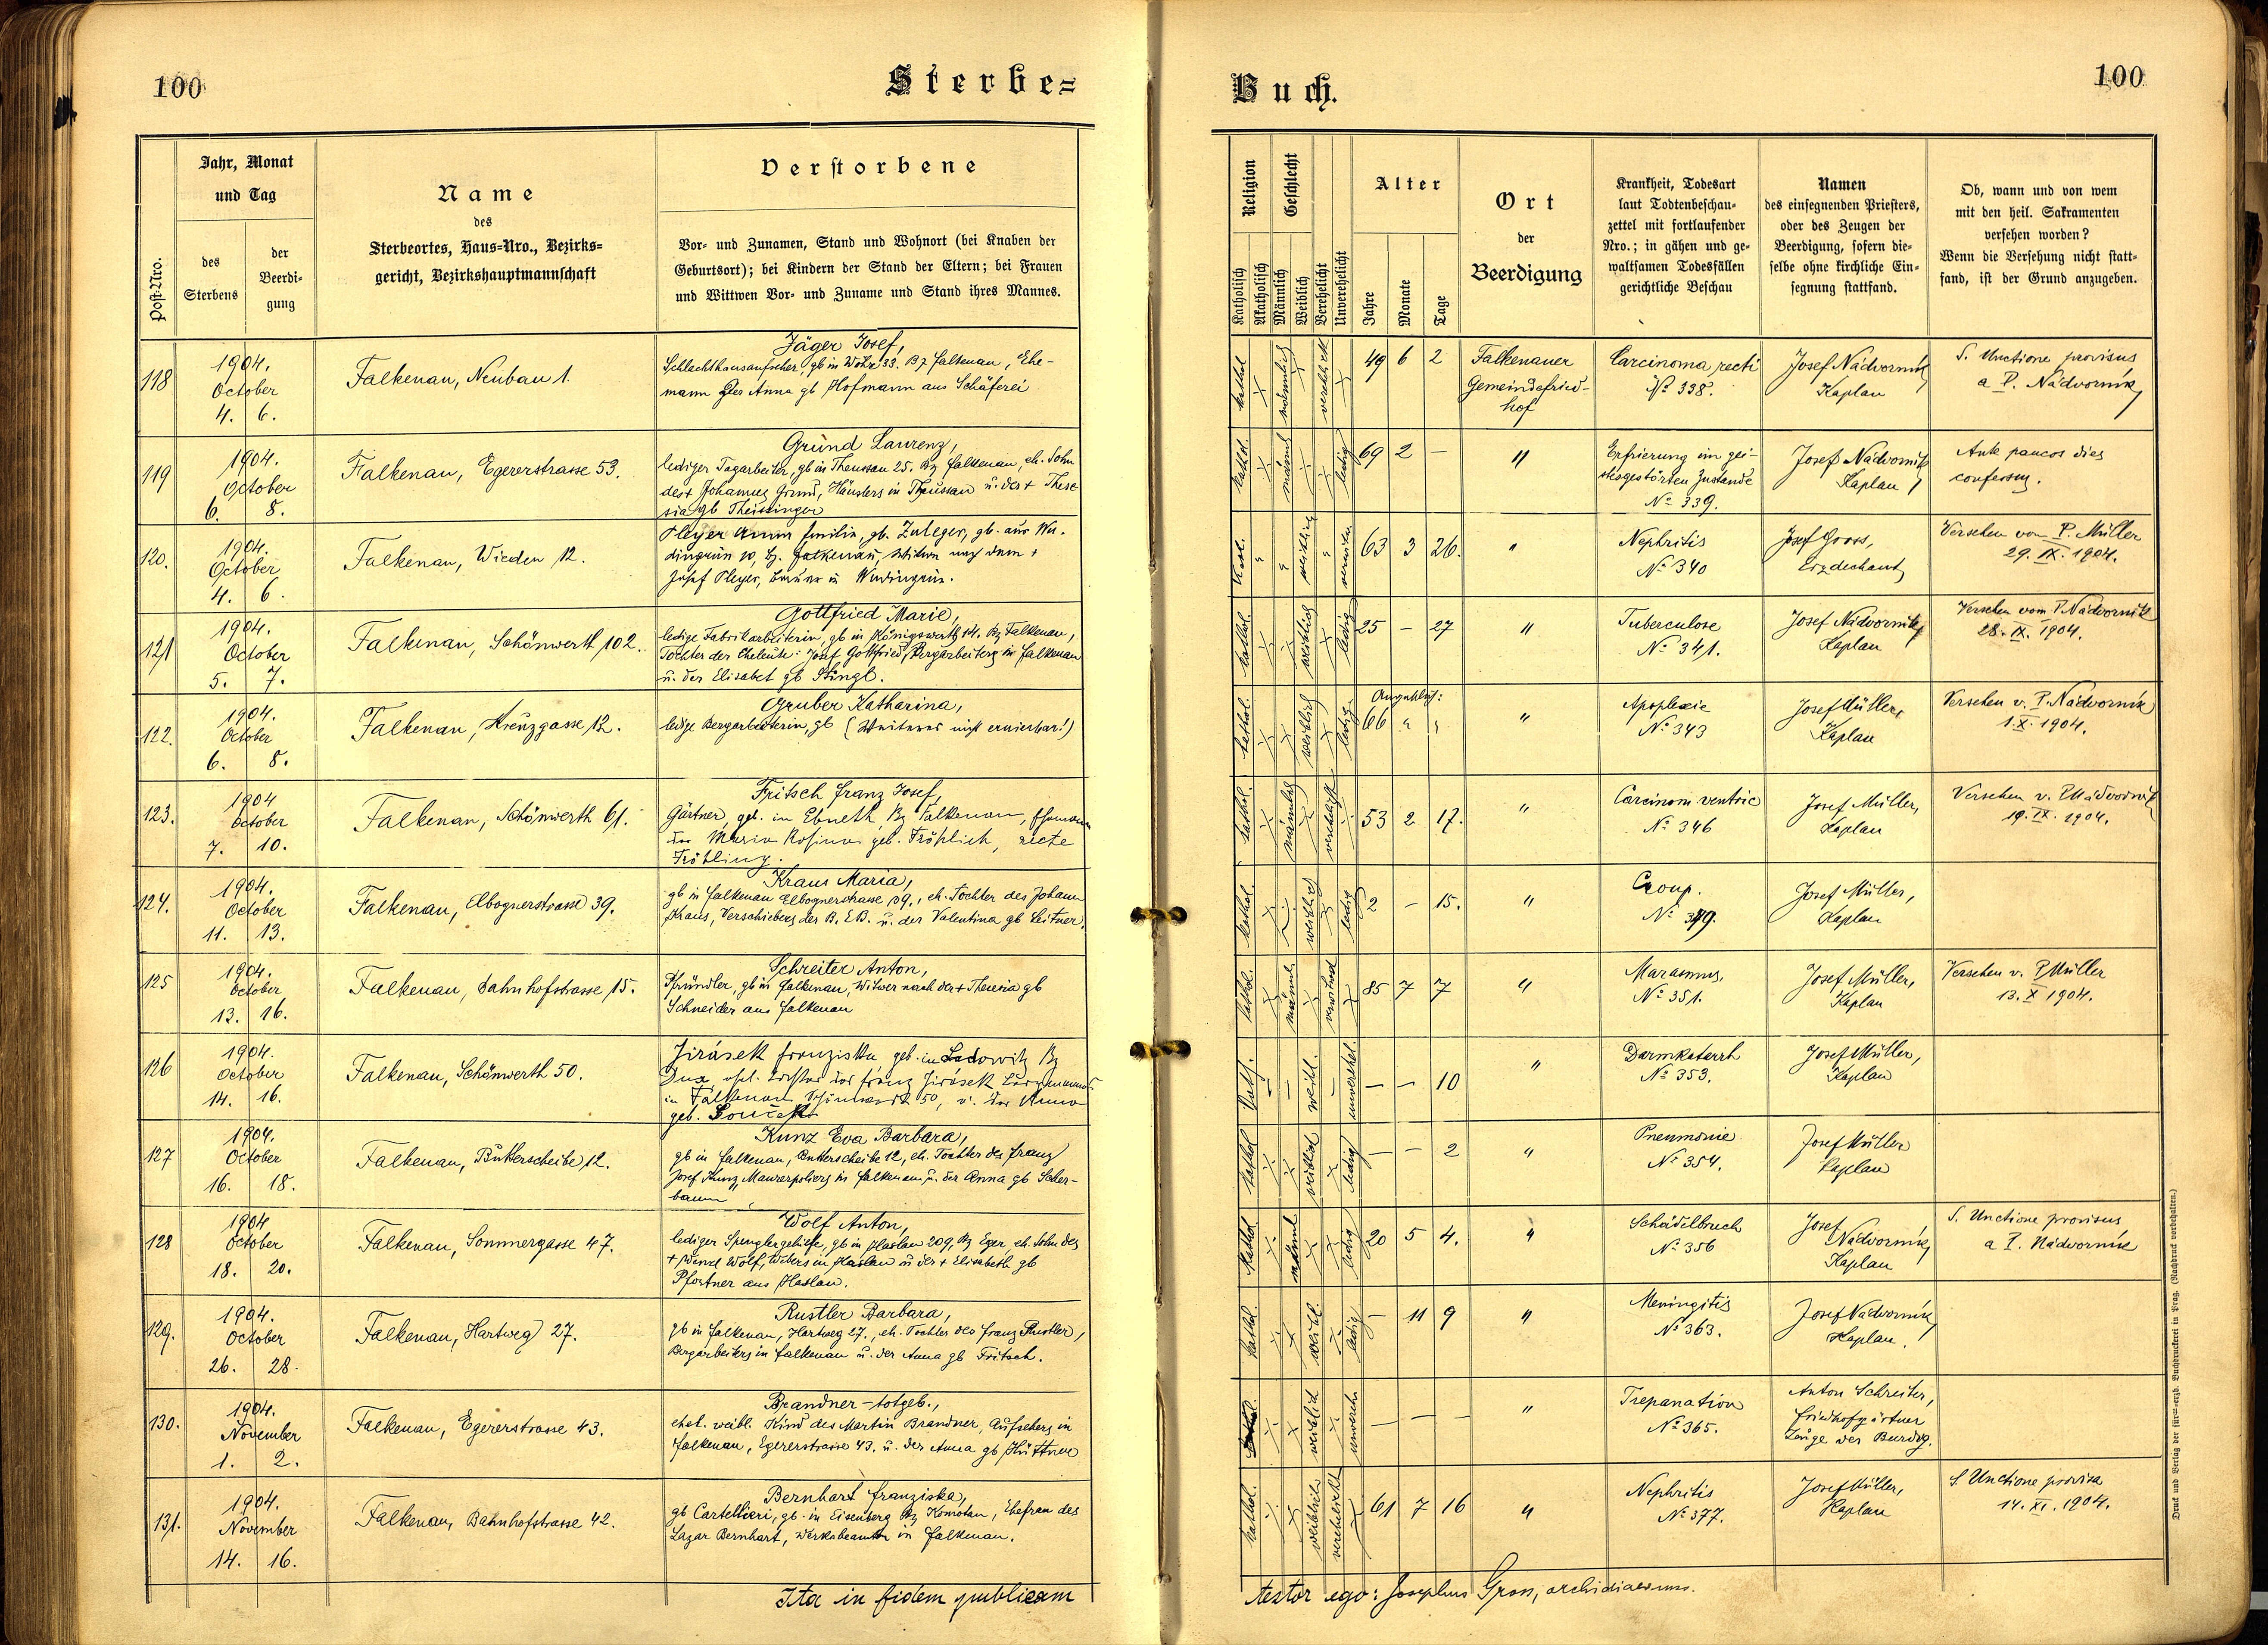 100
Sterbe=
Buch.
100
Post-Nro.
Jahr, Monat
und Tag
des
Sterbens
der
Beerdi-
gung
Name
des
Sterbeortes, Haus=Nro., Bezirks=
gericht, Bezirkshauptmannschaft
Verstorbene
Vor- und Zunamen, Stand und Wohnort (bei Knaben der
Geburtsort); bei Kindern der Stand der Eltern; bei Frauen
und Wittwen Vor- und Zuname und Stand ihres Mannes.
Religion
Katholisch
Akatholisch
Geschlecht
Männlich
Weiblich
Verehelicht
Unverehelicht
Alter
Jahre
Monate
Tage
Ort
der
Beerdigung
Krankheit, Todesart
laut Todtenbeschau-
zettel mit fortlaufender
Nro.; in gähen und ge-
waltsamen Todesfällen
gerichtliche Beschau
Namen
des einsegnenden Priesters,
oder des Zeugen der
Beerdigung, sofern die-
selbe ohne kirchliche Ein-
segnung stattfand.
Ob, wann und von wem
mit den heil. Sakramenten
versehen worden?
Wenn die Versehung nicht statt-
fand, ist der Grund anzugeben.
118
1904.
October
4. 6.
Falkenau, Neubau 1.
Jäger Josef,
Schlachthausaufseher, gb in Wöhr 33. Bz Falkenau, Ehe-
mann der Anna gb Hofmann aus Schäferei
kathol
männlich
verehel.
49 6 2
Falkenauer
Gemeindefried-
hof
Carcinoma recti
No 338.
Josef Nádvorník
Kaplan
S. Unctione provisus
a P. Nádvorník
119
1904.
October
6. 8.
Falkenau, Egererstrasse 53.
Grund Laurenz,
lediger Tagarbeiter, gb in Theussau 25. Bz Falkenau, eh. Sohn
des + Johannes Grund, Häuslers in Theussau u. der + There
sia gb Theisinger
kathol.
männl
ledig
69 2 —
"
Erfrierung im gei-
stesgestörten Zustande
No 339.
Josef Nádvorník
Kaplan
Ante paucos dies
confessus.
120.
1904.
October
4. 6.
Falkenau, Wieden 12.
Pleyer Anna Emilia, gb. Zuleger, gb. aus Wu-
dingrün 10, Bz. Falkenau, Witwe nach dem +
Josef Pleyer, Bauer in Wudingrün.
Kat.
"
"
weiblich
"
verwitw
63 3 26.
"
Nephritis
No 340
Josef Gross,
Erzdechant
Versehen von P. Müller
29. IX. 1904.
121
1904.
October
5. 7.
Falkenau, Schönwerth 102.
Gottfried Marie,
ledige Fabrikarbeiterin, gb in Königswerth 14. Bz Falkenau,
Tochter der Eheleute: Josef Gottfried, Bergarbeiters in Falkenau
u. der Elisabet gb Stingl.
kathol.
weiblich
ledig
25 — 27
"
Tuberculose
No 341.
Josef Nádvorník
Kaplan
Versehen vom P. Nádvorník
28. IX. 1904.
122.
1904.
October
6. 8.
Falkenau, Kreuzgasse 12.
Gruber Katharina,
ledige Bergarbeiterin, gb (Weiteres nicht eruierbar!)
kathol.
weiblich
ledig
Angeblich:
66 " "
"
Apoplexie
No 343
Josef Müller,
Kaplan
Versehen v. P. Nádvorník
1. X. 1904.
123.
1904
October
7. 10.
Falkenau, Schönwerth 61.
Fritsch Franz Josef,
Gärtner, geb. in Ebneth, Bz Falkenau, Ehemann
der Maria Rosina geb. Fröhlich, recte
Fröhling.
kathol.
männlich
verehelicht
53 2 17.
"
Carcinom ventric
No 346
Josef Müller,
Kaplan
Versehen v. P. Nádvorník
19. IX. 1904.
124.
1904.
October
11. 13.
Falkenau, Elbognerstrasse 39.
Kraus Maria,
gb in Falkenau Elbognerstrasse 39., eh. Tochter des Johann
Kraus, Verschiebers der B. E B. u. der Valentina gb Leitner.
kathol.
weiblich
ledig
2 — 15.
"
Croup.
No 349.
Josef Müller,
Kaplan
125
1904.
October
13. 16.
Falkenau, Bahnhofstrasse 15.
Schreiter Anton,
Pfründler, gb in Falkenau, Witwer nach der + Theresia gb
Schneider aus Falkenau
kathol.
männl.
85 7 7
"
Marasmus,
No 351.
Josef Müller,
Kaplan
Versehen v. P Müller
13. X 1904.
126
1904.
October
14. 16.
Falkenau, Schönwerth 50.
Jirásek Franziska geb. in Ladowitz Bz
Dux, ehel. Tochter des Franz Jirásek Bergmanns
in Falkenau Schönwerth 50, u. der Anna
geb. Souček
Kath.
—
—
weibl.
—
unverehel.
— — 10
"
Darmkatarrh
No 353.
Josef Müller,
Kaplan
127
1904.
October
16. 18.
Falkenau, Butterscheibe 12.
Kunz Eva Barbara,
gb in Falkenau, Butterscheibe 12, eh. Tochter des Franz
Josef Kunz, Maurerpoliers in Falkenau u. der Anna gb Scher-
baum
kathol
weiblich
ledig
— — 2
"
Pneumonie
No 354.
Josef Müller
Kaplan
128
1904
October
18. 20.
Falkenau, Sommergasse 47.
Wolf Anton,
lediger Spenglergehilfe, gb in Haslau 209, Bz Eger, eh. Sohn des
+ Wenzl Wolf, Webers in Haslau u der + Elisabeth gb
Pfortner aus Haslau.
Kathol
männl
ledig
20 5 4.
"
Schädelbruch
No 356
Josef
Nádvorník,
Kaplan
S. Unctione provisus
a P. Nádvorník
129.
1904.
October
26. 28.
Falkenau, Hartweg 27.
Rustler Barbara,
gb in Falkenau, Hartweg 27., eh. Tochter des Franz Rustler,
Bergarbeiters in Falkenau u. der Anna gb Fritsch.
kathol.
weibl.
ledig
— 11 9
"
Meningitis
No 363.
Josef Nádvorník,
Kaplan.
130.
1904.
November
1. 2.
Falkenau, Egererstrasse 43.
Brandner – totgeb.,
ehel. weibl. Kind des Martin Brandner, Aufsehers in
Falkenau, Egererstrasse 43. u. der Anna gb Hüttner
weiblich
unvereh.
— — —
"
Trepanation
No 365.
Anton Schreiter,
Friedhofgärtner
Zeuge der Beerdg.
131.
1904.
November
14. 16.
Falkenau, Bahnhofstrasse 42.
Bernhart Franziska,
gb Cartellieri, gb. in Eisenberg Bz Komotau, Ehefrau des
Lazar Bernhart, Werksbeamter in Falkenau.
kathol.
weiblich
verehelicht
61 7 16
"
Nephritis
No 377.
Josef Müller,
Kaplan
S. Unctione provisa
14. XI. 1904.
Ita in fidem publicam
testor ego: Josephus Gross, archidiaconus.
Druck und Verlag der fürst-erzb. Buchdruckerei in Prag. (Nachdruck vorbehalten.)